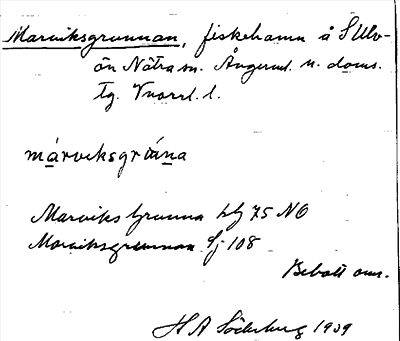 Marviksgrunnan, fiskehamn å S Ulv-
ön Nätra sn. Ångerml. n. doms.
tg. Vnorrl. l.
márviksgrùna
Marviks Grunna hLj 75 NO
Marviksgrunnan Sj 108
Bebott omr.
H A Söderberg 1939